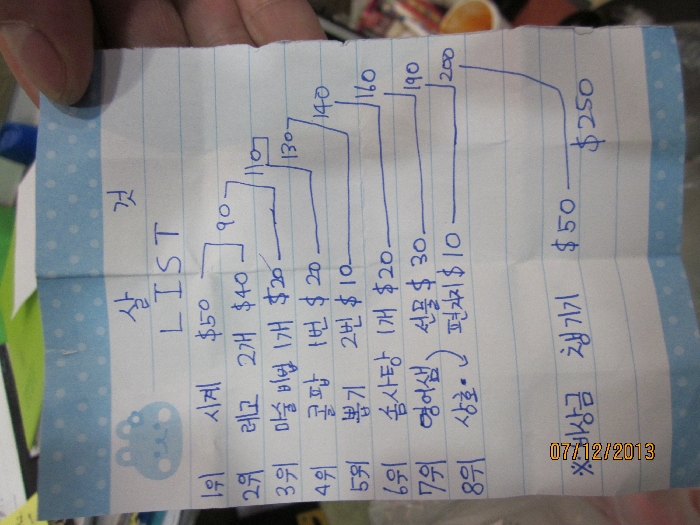 살 것
LIST
1위 시계 $50
2위 레고 2개 $40 90
3위 마술 비법 1개 $20 110
4위 골팝 1번 $20 130
5위 뽑기 2번 $10 140
6위 솜사탕 1개 $20 160
7위 영어샘 선물 $30 190
8위 상호 편지지 $10 200
※비상금 챙기기 $50 $250
07/12/2013